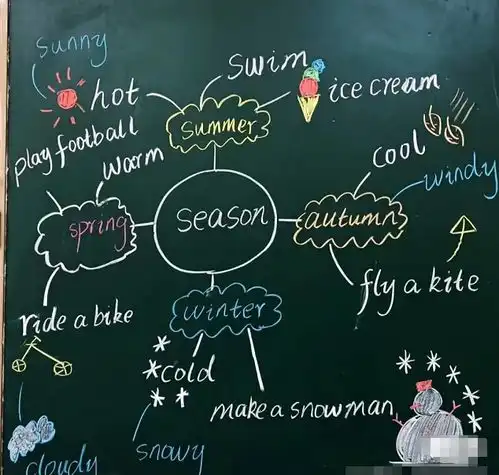 sunny
hot
swim
ice cream
play football
warm
summer
cool
windy
spring
season
autumn
fly a kite
ride a bike
winter
cold
make a snowman
cloudy
snowy